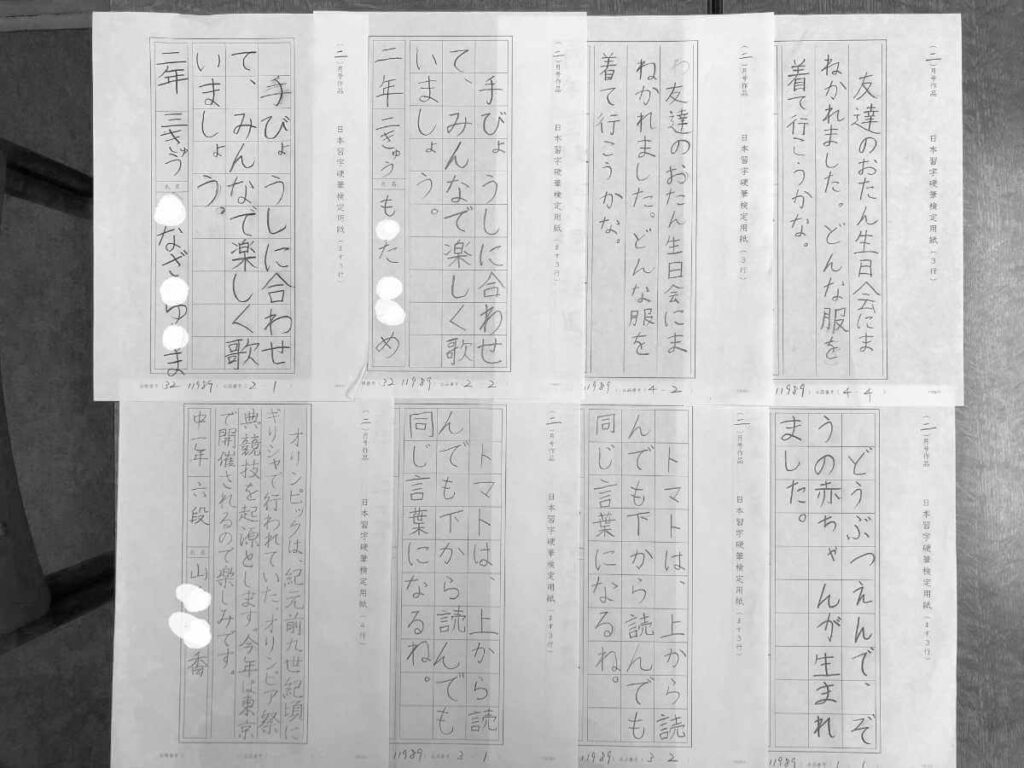 二月号作品
日本習字硬筆検定用紙(3行)
友達のおたん生日会にま
ねかれました。どんな服を
着て行こうかな。
11989
4-4
二月号作品
日本習字硬筆検定用紙(3行)
友達のおたん生日会にま
ねかれました。どんな服を
着て行こうかな。
11989
4-2
二月号作品
日本習字硬筆検定用紙(ます3行)
手びょうしに合わせ
て、みんなで楽しく歌
いましょう。
二年 二きゅう
も
た
め
32 11989
2-2
二月号作品
日本習字硬筆検定用紙(ます3行)
手びょうしに合わせ
て、みんなで楽しく歌
いましょう。
二年 三きゅう
なざ
ゆ
ま
32 11989
2-1
二月号作品
日本習字硬筆検定用紙(ます3行)
どうぶつえんで、ぞ
うの赤ちゃんが生まれ
ました。
11989
1-1
二月号作品
日本習字硬筆検定用紙(ます3行)
トマトは、上から読
んでも下から読んでも
同じ言葉になるね。
11989
3-2
二月号作品
日本習字硬筆検定用紙(ます3行)
トマトは、上から読
んでも下から読んでも
同じ言葉になるね。
11989
3-1
二月号作品
日本習字硬筆検定用紙
オリンピックは、紀元前九世紀頃に
ギリシャで行われていた、オリンピア祭
典競技を起源とします。今年は東京
で開催されるので楽しみです。
中一年 六段 山
喬